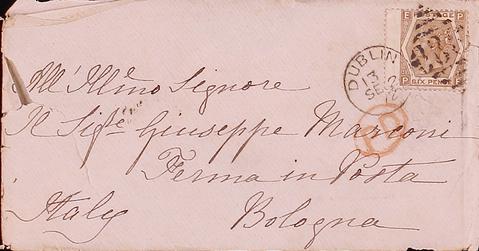 POSTAGE
SIX PENCE
E P
P E
DUBLIN
All' Illmo Signore
Il Sigre Giuseppe Marconi
Ferma in Posta
Italy Bologna
PD